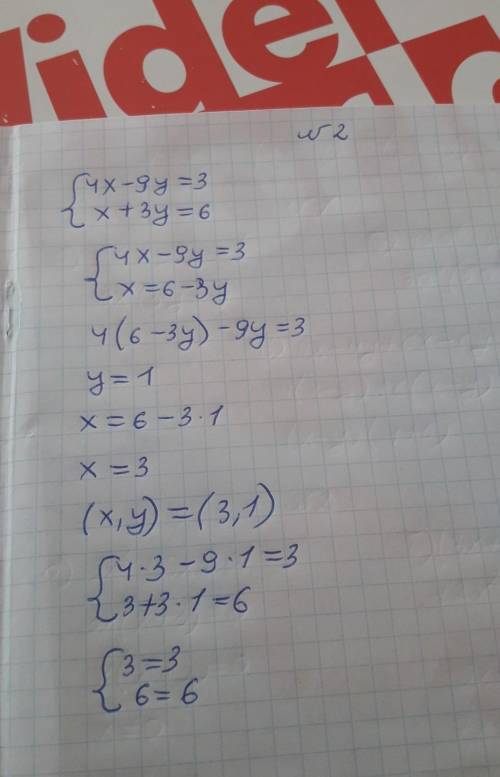 videl
№ 2
{4x-9y=3
x+3y=6
{4x-9y=3
x=6-3y
4(6-3y)-9y=3
y=1
x=6-3·1
x=3
(x,y)=(3,1)
{4·3-9·1=3
3+3·1=6
{3=3
6=6